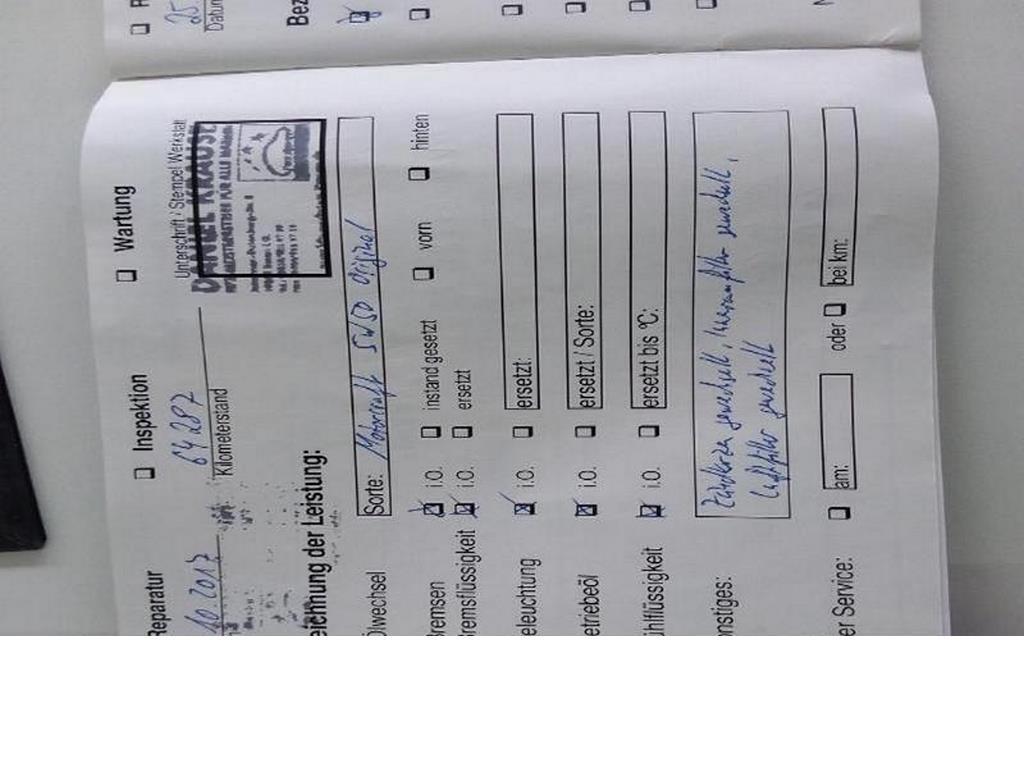 Reparatur ☐ Inspektion ☐ Wartung
10.2017 64287
Kilometerstand Unterschrift / Stempel Werkstatt
DANIEL KRAUSE
FÜR ALLE
eichnung der Leistung:
Ölwechsel Sorte: Motorcraft 5W30 Original
Bremsen ☒ i.O. ☐ instand gesetzt ☐ vorn ☐ hinten
Bremsflüssigkeit ☒ i.O. ☐ ersetzt
eleuchtung ☒ i.O. ☐ ersetzt:
etriebeöl ☒ i.O. ☐ ersetzt / Sorte:
ühlflüssigkeit ☒ i.O. ☐ ersetzt bis °C:
onstiges: Zündkerzen gewechselt, Innenraumfilter gewechselt,
Luftfilter gewechselt
er Service: ☐ am: oder ☐ bei km:
☐ R
25
Datum
Bez